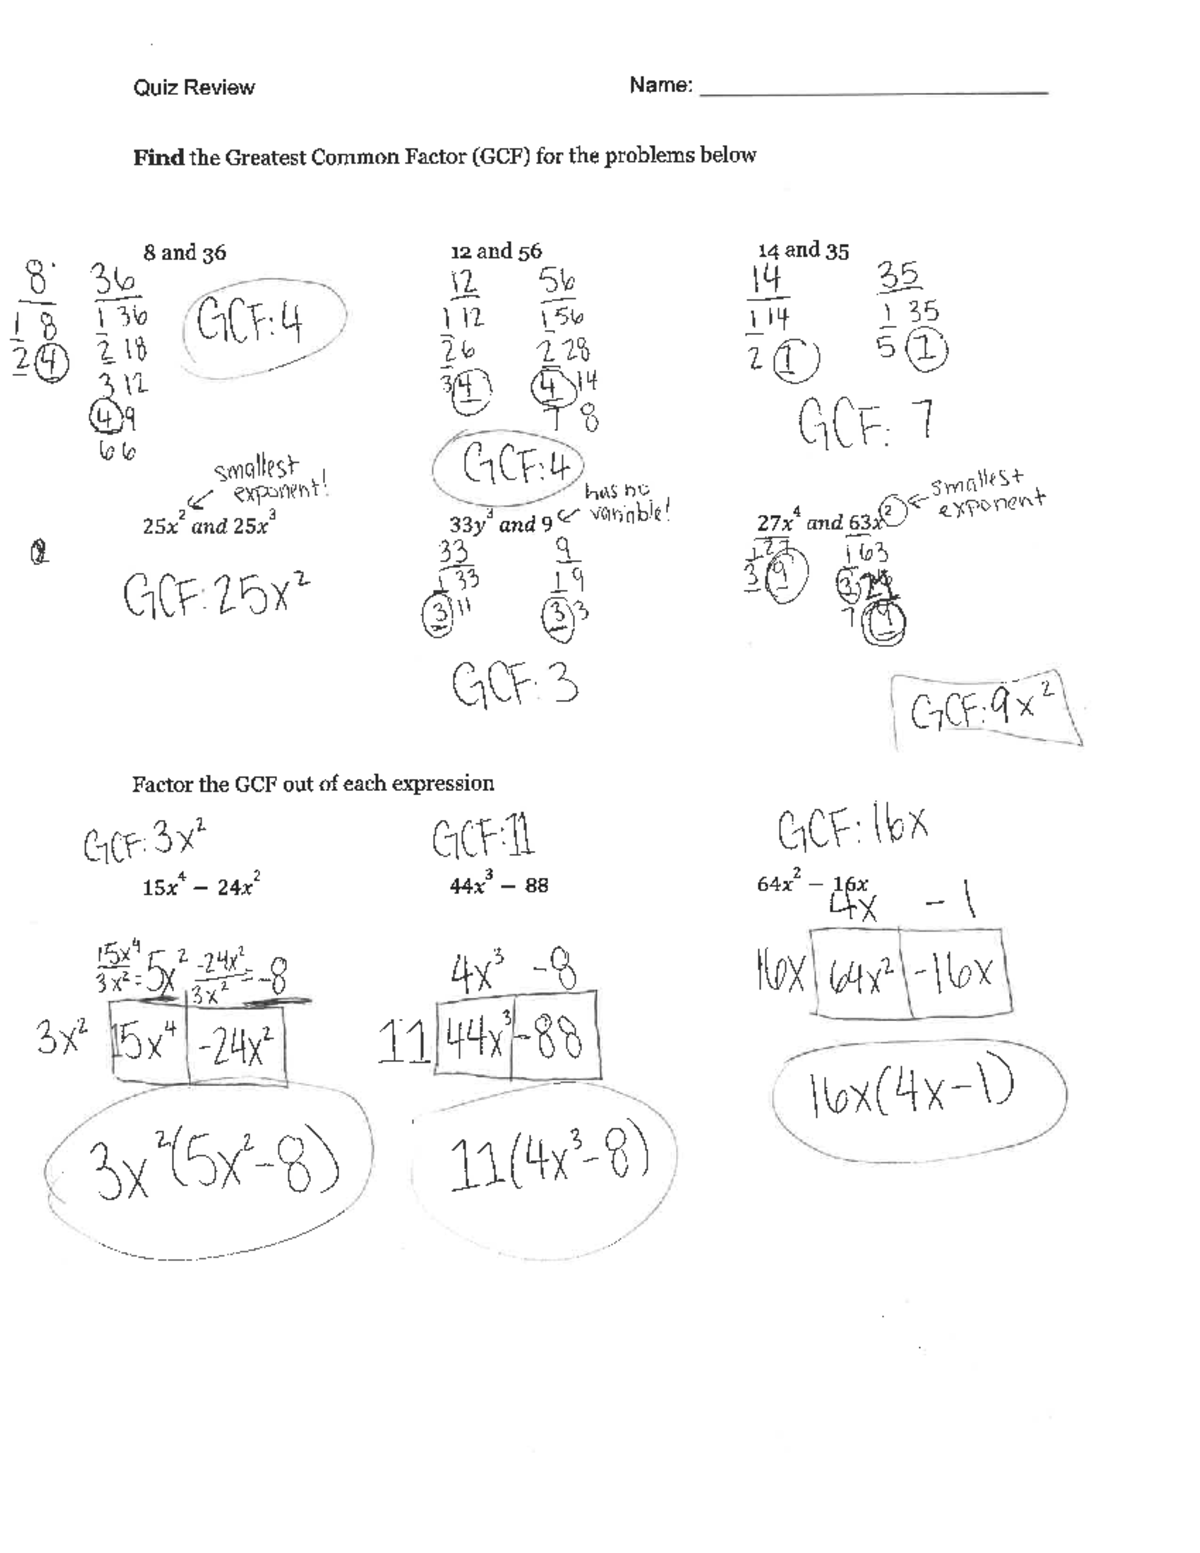 Quiz Review Name:
Find the Greatest Common Factor (GCF) for the problems below
8 and 36
8 36
1 8 1 36
2 4 2 18
3 12
4 9
6 6
GCF: 4
12 and 56
12 56
1 12 1 56
2 6 2 28
3 4 4 14
7 8
GCF: 4
14 and 35
14 35
1 14 1 35
2 7 5 7
GCF: 7
smallest
exponent!
25x² and 25x³
GCF: 25x²
has no
variable!
33y³ and 9
33 9
1 33 1 9
3 11 3 3
GCF: 3
smallest
exponent
27x⁴ and 63x²
1 27 1 63
3 9 3 21
7 9
GCF: 9x²
Factor the GCF out of each expression
GCF: 3x²
15x⁴ − 24x²
15x⁴/3x² = 5x² -24x²/3x² = -8
3x² 15x⁴ -24x²
3x²(5x²-8)
GCF: 11
44x³ − 88
4x³ -8
11 44x³ -88
11(4x³-8)
GCF: 16x
64x² − 16x
4x -1
16x 64x² -16x
16x(4x-1)